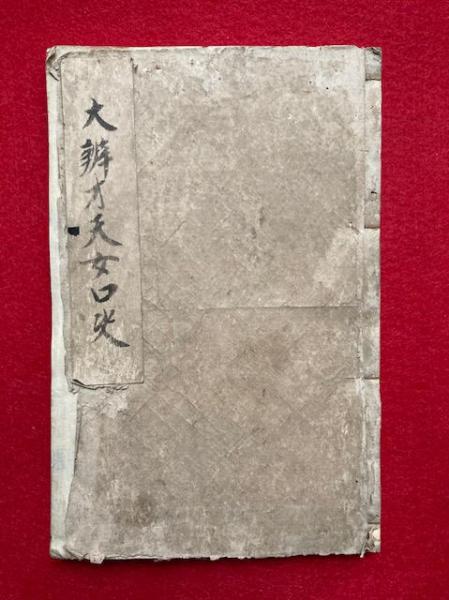 大辨才天女口决